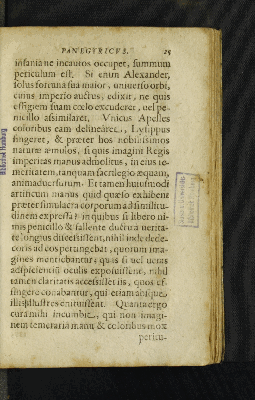 PANEGYRICVS. 25
insaniane incautos occupet, summum
periculum est. Si enim Alexander,
solus fortuna sua maior, universo orbi,
cuius imperio auctus, edixit, ne quis
effigiem suam cœlo excuderet, uel pe-
nicillo assimilaret. Vnicus Apelles
coloribus eam delinearet, Lysippus
fingeret, & præter hos nobilissimos
naturæ æmulos, si quis imagini Regis
imperitas manus admolitus, in eius te-
meritatem, tanquam sacrilegio æquam,
animaduersurum. Et tamen huiusmodi
artificum manus quid quæso exhibent
præter simulacra corporum ad similitu-
dinem expressa? in quibus si libero ni-
mis penicillo & fallente ductu a uerita-
te longius discessissent, nihil inde dede-
coris ad eos perangebat, quorum ima-
gines mentiebantur; quas si uel ueras
adspicientis oculis exposuissent, nihil
tamen claritatis accessisset iis, quos ef-
fingere conabantur, qui etiam absque
illis illustres enituissent. Quanta ergo
cura mihi incumbit, qui non imagi-
nem temeraria manu & coloribus mox
peritu-